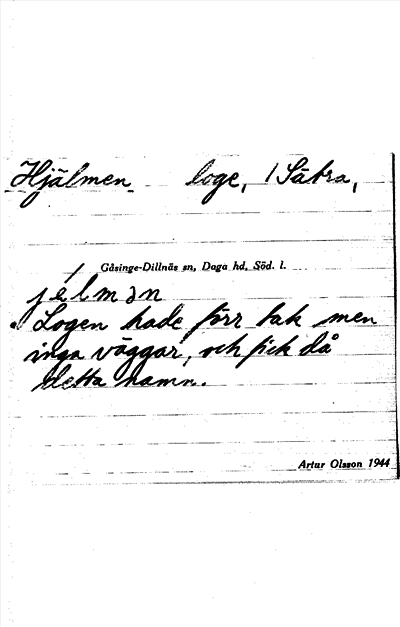 Hjälmen loge, 1 Säbra,
Gåsinge-Dillnäs sn, Daga hd, Söd. l.
jélmən
Logen hade förr tak men
inga väggar, och fick då
detta namn.
Artur Olsson 1944